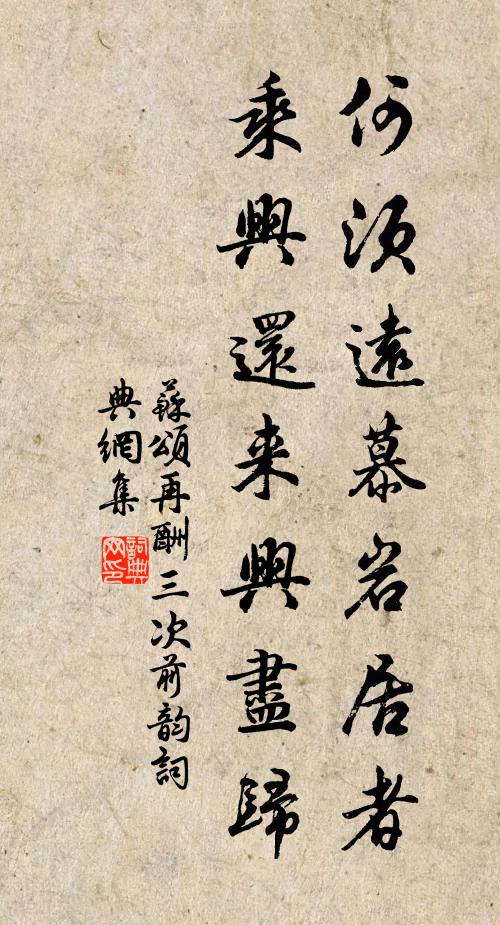 何須遠慕岩居者
乘興還来興盡歸
蘇頌再酬三次前韵詞
典網集
詞典
网印